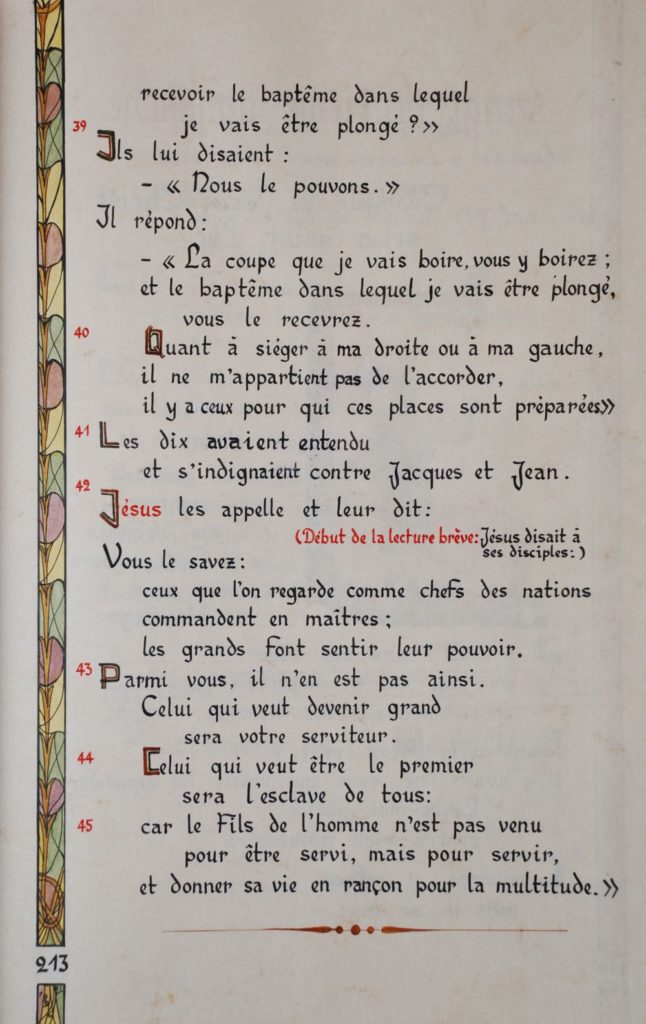 recevoir le baptême dans lequel
je vais être plongé ?»
39
Ils lui disaient :
– « Nous le pouvons. »
Il répond :
– « La coupe que je vais boire, vous y boirez ;
et le baptême dans lequel je vais être plongé,
vous le recevrez.
40
Quant à siéger à ma droite ou à ma gauche,
il ne m'appartient pas de l'accorder,
il y a ceux pour qui ces places sont préparées»
41 Les dix avaient entendu
et s'indignaient contre Jacques et Jean.
42
Jésus les appelle et leur dit :
(Début de la lecture brève: Jésus disait à
ses disciples: )
Vous le savez :
ceux que l'on regarde comme chefs des nations
commandent en maîtres ;
les grands font sentir leur pouvoir.
43 Parmi vous, il n'en est pas ainsi.
Celui qui veut devenir grand
sera votre serviteur.
44 Celui qui veut être le premier
sera l'esclave de tous:
45 car le Fils de l'homme n'est pas venu
pour être servi, mais pour servir,
et donner sa vie en rançon pour la multitude. »
213